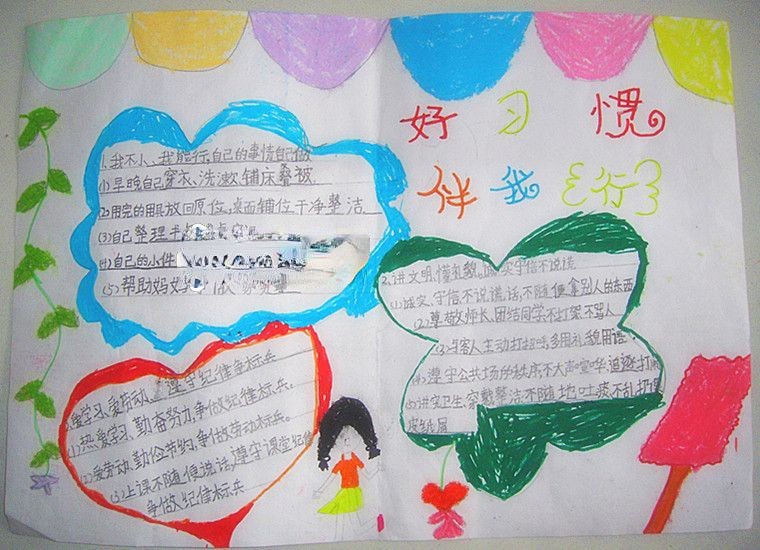 好习惯
伴我行
1.我不小、我能行,自己的事情自己做
(1)早晚自己穿衣、洗漱、铺床叠被
(2)用完的用具放回原位,桌面铺位干净整洁
(3)自己整理
(4)自己的小件
(5)帮助妈妈
2.讲文明、懂礼貌、诚实守信不说谎
(1)诚实、守信不说谎话,不随便拿别人的东西
(2)尊敬师长、团结同学不打架不骂人
(3)与客人主动打招呼,多用礼貌用语
(4)遵守公共场所秩序,不大声喧哗、追逐打闹
(5)讲究卫生、穿戴整洁不随地吐痰不乱扔果
皮纸屑
爱学习、爱劳动、遵守纪律争做标兵
(1)热爱学习、勤奋努力,争做纪律标兵。
(2)爱劳动、勤俭节约,争做劳动标兵。
(3)上课不随便说话,遵守课堂纪律
争做纪律标兵